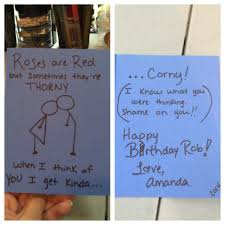 Roses are Red
but sometimes they're
THORNY
when I think of
YOU I get kinda...
...Corny!
(I know what you
were thinking.
Shame on you!!)
Happy
Birthday Rob!
Love,
Amanda